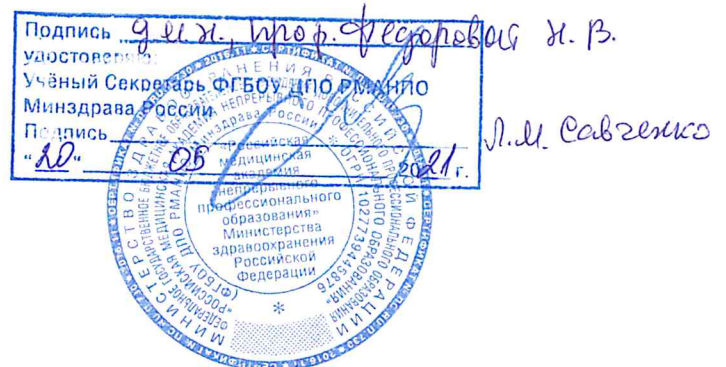 Подпись д.м.н., проф. Федоровой Н. В.
удостоверяю:
Учёный Секретарь ФГБОУ ДПО РМАНПО
Минздрава России
Подпись
"20" 05 2021 г.
Л.М. Савченко
МИНИСТЕРСТВО ЗДРАВООХРАНЕНИЯ РОССИЙСКОЙ ФЕДЕРАЦИИ
ФЕДЕРАЛЬНОЕ ГОСУДАРСТВЕННОЕ БЮДЖЕТНОЕ ОБРАЗОВАТЕЛЬНОЕ
"РОССИЙСКАЯ МЕДИЦИНСКАЯ АКАДЕМИЯ НЕПРЕРЫВНОГО ПРОФЕССИОНАЛЬНОГО ОБРАЗОВАНИЯ"
(ФГБОУ ДПО РМАНПО Минздрава России)
* ОГРН 1027739445876
«Российская
медицинская
академия
непрерывного
профессионального
образования»
Министерства
здравоохранения
Российской
Федерации
*